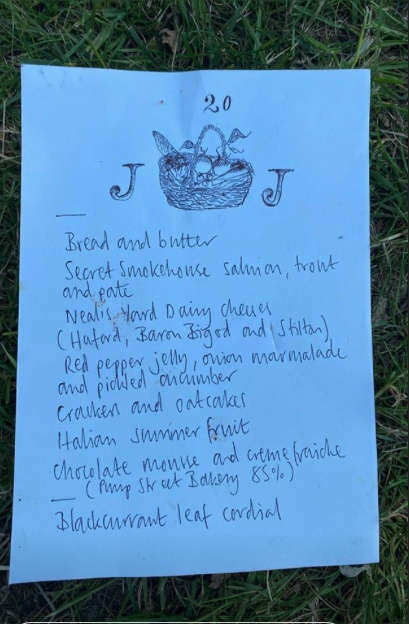 20
J J
Bread and butter
Secret Smokehouse salmon, trout
and pate
Neal's Yard Dairy cheeses
(Hafod, Baron Bigod and Stilton)
Red pepper jelly, onion marmalade
and pickled cucumber
Crackers and oatcakes
Italian summer fruit
Chocolate mousse and creme fraiche
(Pump Street Bakery 85%)
Blackcurrant leaf cordial